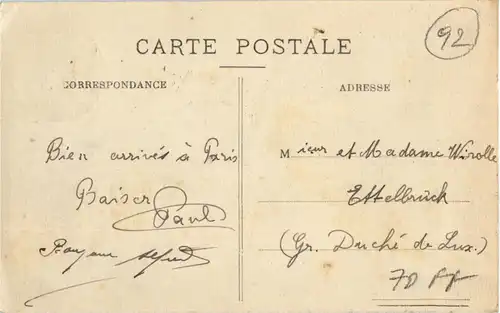 92
CARTE POSTALE
CORRESPONDANCE
ADRESSE
Bien arrivés à Paris
Baiser
Paul
Mieur et Madame Wirolle
Ettelbrück
(Gr. Duché de Lux.)
70